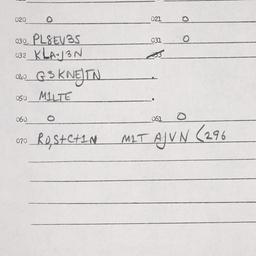 020 0 021 0
030 PL8EV35 031 0
032 KLA-J3N
040 G3KNEJTN
050 M1LTE
060 0 061 0
070 R0,S+C+1N M1T AJVN (296